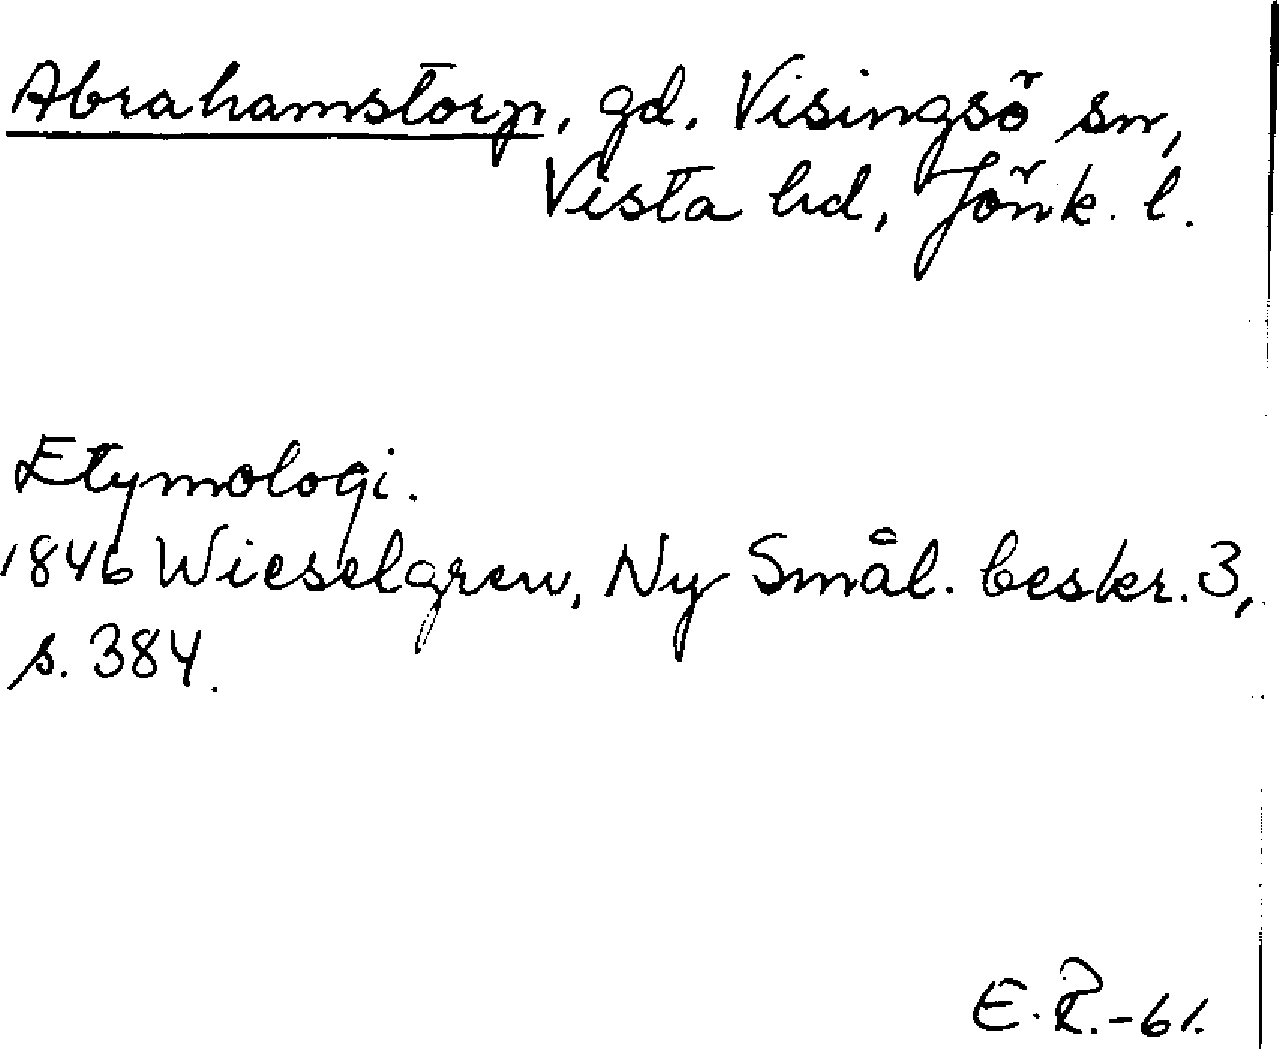 Abrahamstorp, gd. Visingsö sn,
Vista hd, Jönk. l.
Etymologi.
1846 Wieselgren, Ny Smål. beskr. 3,
s. 384.
E. R. -61.